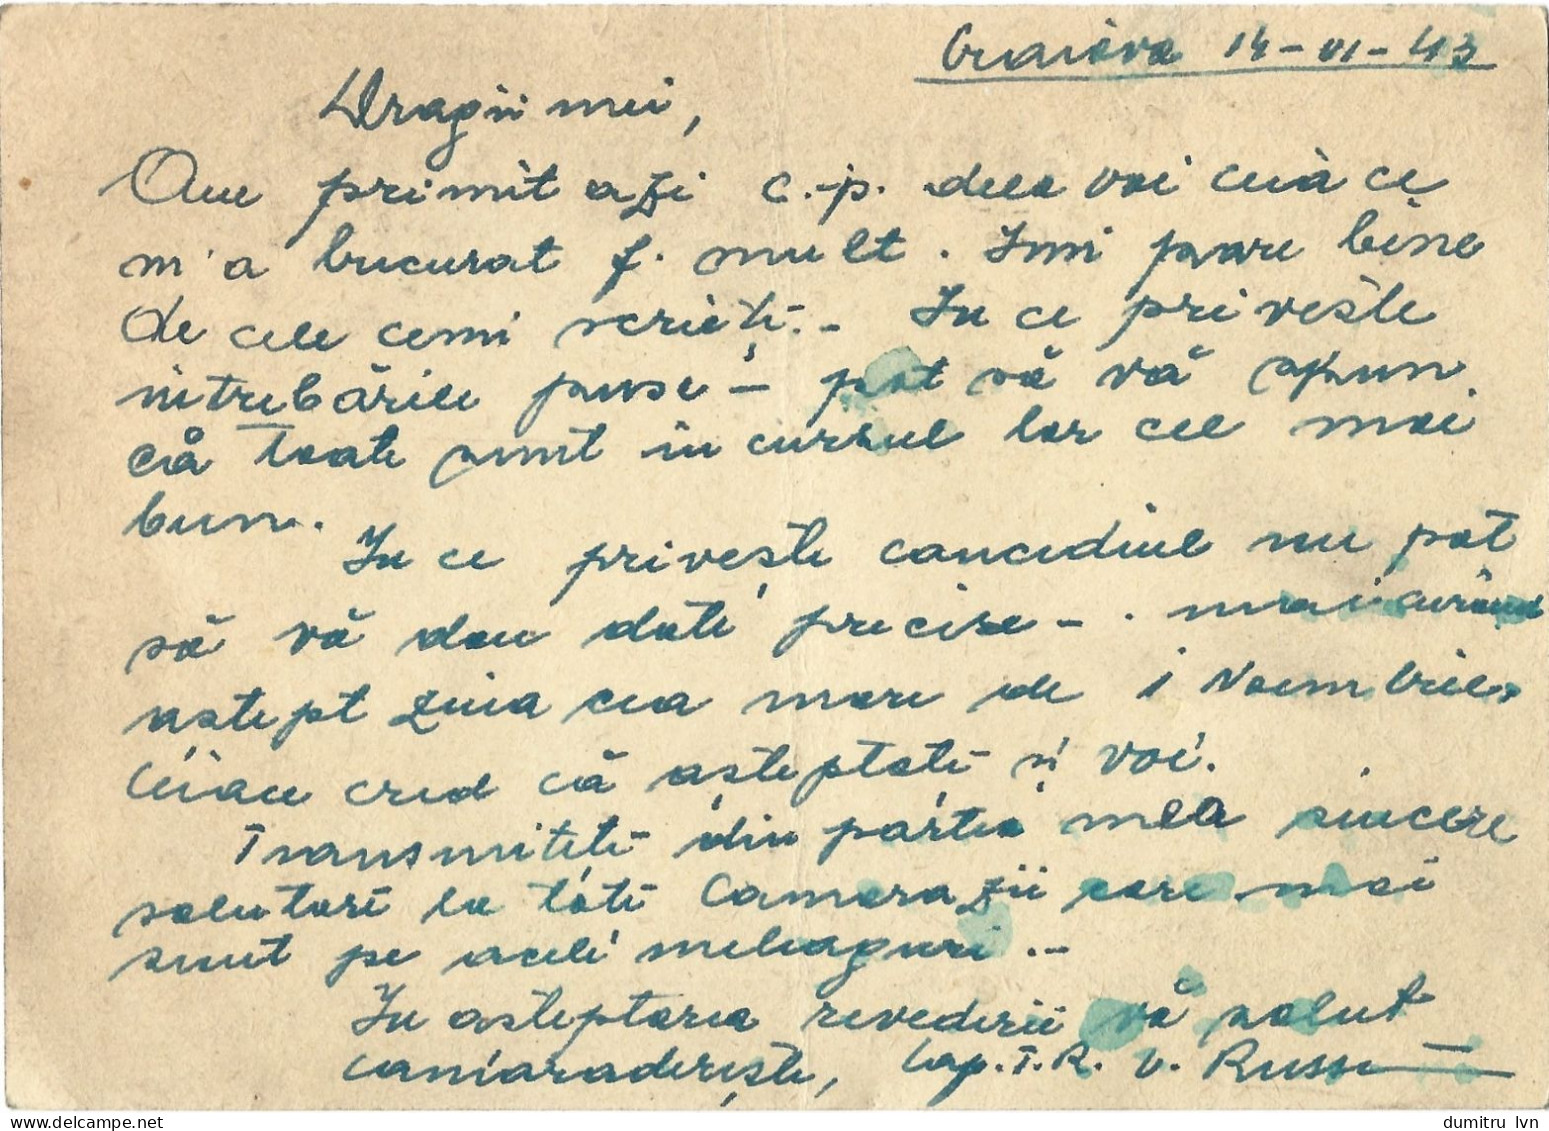 Craiova 14-VI-43
Dragii mei,
Am primit azi c.-p. dela voi ceiace
m'a bucurat f. mult. Imi pare bine
de cele cemi scrieți.- In ce privește
intrebările puse - pot să vă spun
că toate sunt in cursul lor cel mai
bun.
In ce privește concediul nu pot
să vă dau date precise -. mai curând
astept ziua cea mare de 1 Noembrie,
ceiace cred că așteptati și voi.
Transmiteți din partea mea sincere
salutari la toti Camarazii care mai
sunt pe aceli meleaguri.-
In asteptarea revederii vă salut
camaraderește, Cap. T.R. V. Russu
dumitru lvn